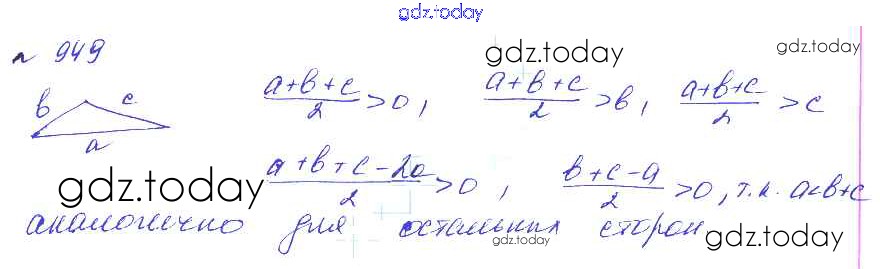 gdz.today
n 949
gdz.today gdz.today
b c a
(a+b+c)/2 > 0, (a+b+c)/2 > b, (a+b+c)/2 > c
(a+b+c-2a)/2 > 0, (b+c-a)/2 > 0, т.к. a<b+c
gdz.today
аналогично для остальных сторон
gdz.today gdz.today